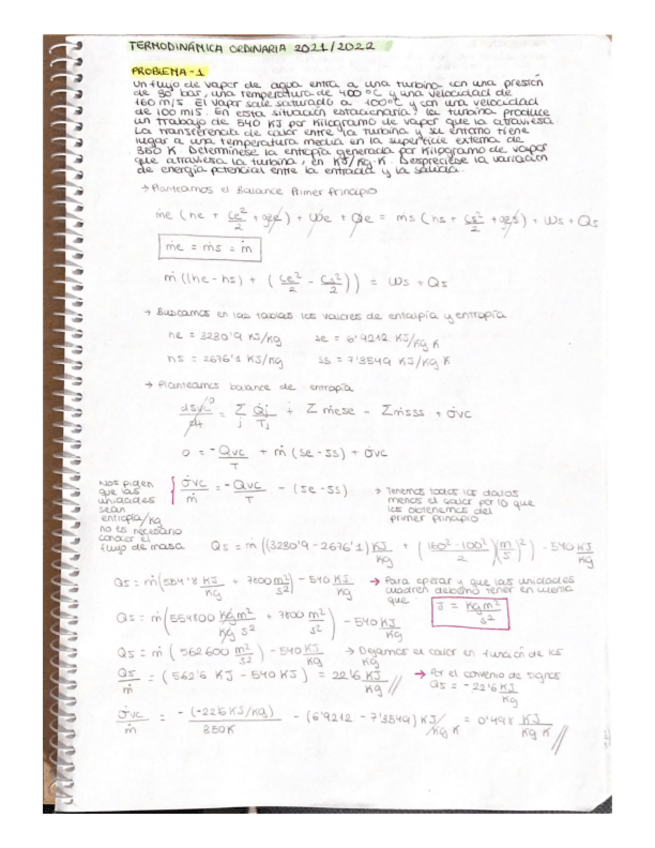 TERMODINÁMICA ORDINARIA 2021/2022
PROBLEMA-1
Un flujo de vapor de agua entra a una turbina con una presión
de 30 bar, una temperatura de 400 ºC y una velocidad de
160 m/s. El vapor sale saturado a 100ºC y con una velocidad
de 100 m/s. En esta situación estacionaria, la turbina produce
un trabajo de 540 KJ por kilogramo de vapor que la atraviesa.
La transferencia de calor entre la turbina y su entorno tiene
lugar a una temperatura media en la superficie externa de
350 K. Determínese la entropía generada por kilogramo de vapor
que atraviesa la turbina, en KJ/Kg·K. Despreciese la variación
de energía potencial entre la entrada y la salida.
→ Planteamos el Balance Primer Principio
ṁe (he + Ce²/2 + gze) + We + Qe = ṁs (hs + Cs²/2 + gzs) + Ws + Qs
ṁe = ṁs = ṁ
ṁ ((he - hs) + (Ce²/2 - Cs²/2)) = Ws + Qs
→ Buscamos en las tablas los valores de entalpía y entropía
he = 3230'9 KJ/Kg se = 6'9212 KJ/Kg K
hs = 2676'1 KJ/Kg ss = 7'3549 KJ/Kg K
→ Planteamos balance de entropía
dSvc/dt 0 = Σj Q̇j/Tj + Σ ṁese - Σ ṁsss + σ̇vc
0 = -Qvc/T + ṁ (se - ss) + σ̇vc
Nos piden
que las
unidades
sean
entropía/kg
no es necesario
conocer el
flujo de masa
σ̇vc/ṁ = -Qvc/T - (se - ss)
→ Tenemos todos los datos
menos el calor por lo que
los obtenemos del
primer principio
Qs = ṁ ((3230'9 - 2676'1) KJ/Kg + (160² - 100²/2)(m/s)²) - 540 KJ/Kg
Qs = ṁ (554'8 KJ/Kg + 7800 m²/s²) - 540 KJ/Kg
→ Para operar y que las unidades
cuadren debemos tener en cuenta
que J = Kg m²/s²
Qs = ṁ (554800 Kg m²/Kg s² + 7800 m²/s²) - 540 KJ/Kg
Qs = ṁ (562600 m²/s²) - 540 KJ/Kg → Dejamos el calor en función de los Kg
Qs/ṁ = (562'6 KJ - 540 KJ) = 22'6 KJ/Kg //
→ Por el convenio de signos
Qs = -22'6 KJ/Kg
σ̇vc/ṁ = -(-22'6 KJ/Kg)/350K - (6'9212 - 7'3549) KJ/Kg K = 0'498 KJ/Kg K //